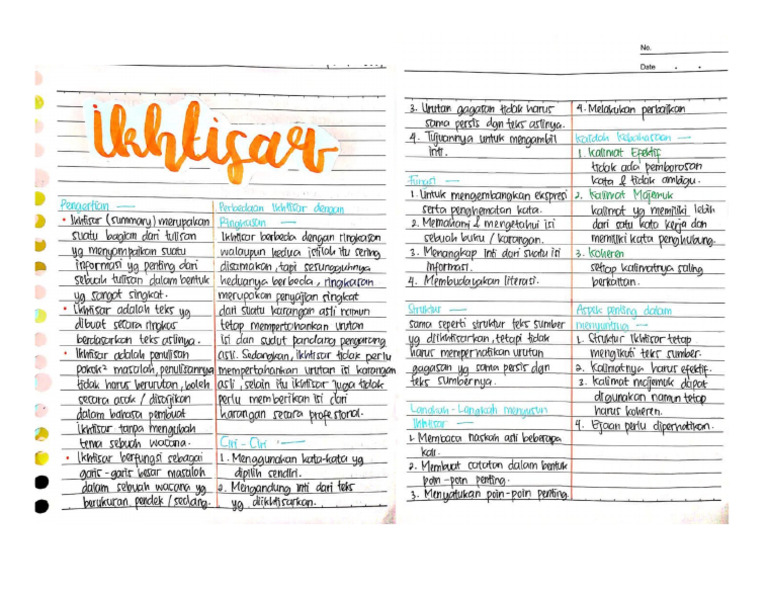 ikhtisar
Pengertian
• Ikhtisar (summary) merupakan
suatu bagian dari tulisan
yg menyampaikan suatu
informasi yg penting dari
sebuah tulisan dalam bentuk
yg sangat singkat.
• Ikhtisar adalah teks yg
dibuat secara ringkas
berdasarkan teks aslinya.
• Ikhtisar adalah penulisan
pokok² masalah, penulisannya
tidak harus berurutan, boleh
secara acak / disajikan
dalam bahasa pembuat
ikhtisar tanpa mengubah
tema sebuah wacana.
• Ikhtisar berfungsi sebagai
garis-garis besar masalah
dalam sebuah wacana yg
berukuran pendek / sedang.
Perbedaan Ikhtisar dengan
Ringkasan
Ikhtisar berbeda dengan ringkasan
walaupun kedua istilah itu sering
disamakan, tapi sesungguhnya
keduanya berbeda, ringkasan
merupakan penyajian ringkat
dari suatu karangan asli namun
tetap mempertahankan urutan
isi dan sudut pandang pengarang
asli. Sedangkan, ikhtisar tidak perlu
mempertahankan urutan isi karangan
asli, selain itu ikhtisar juga tidak
perlu memberikan isi dari
karangan secara profesional.
Ciri - Ciri
1. Menggunakan kata-kata yg
dipilih sendiri.
2. Mengandung inti dari teks
yg diikhtisarkan.
No.
Date
3. Urutan gagasan tidak harus
sama persis dgn teks aslinya.
4. Tujuannya untuk mengambil
inti.
Fungsi
1. Untuk mengembangkan ekspresi
serta penghematan kata.
2. Memahami & mengetahui isi
sebuah buku / karangan.
3. Menangkap inti dari suatu isi
informasi.
4. Membudayakan literasi.
Struktur
sama seperti struktur teks sumber
yg diikhtisarkan, tetapi tidak
harus memperhatikan urutan
gagasan yg sama persis dgn
teks sumbernya.
Langkah - Langkah menyusun
Ikhtisar
1. Membaca naskah asli beberapa
kali.
2. Membuat catatan dalam bentuk
poin-poin penting.
3. Menyatukan poin-poin penting.
4. Melakukan perbaikan
Kaidah Kebahasaan
1. Kalimat Efektif
tidak ada pemborosan
kata & tidak ambigu.
2. Kalimat Majemuk
kalimat yg memiliki lebih
dari satu kata kerja dan
memiliki kata penghubung.
3. Koheren
setiap kalimatnya saling
berkaitan.
Aspek penting dalam
menyunting
1. Struktur ikhtisar tetap
mengikuti teks sumber.
2. Kalimatnya harus efektif.
3. Kalimat majemuk dapat
digunakan namun tetap
harus koheren.
4. Ejaan perlu diperhatikan.